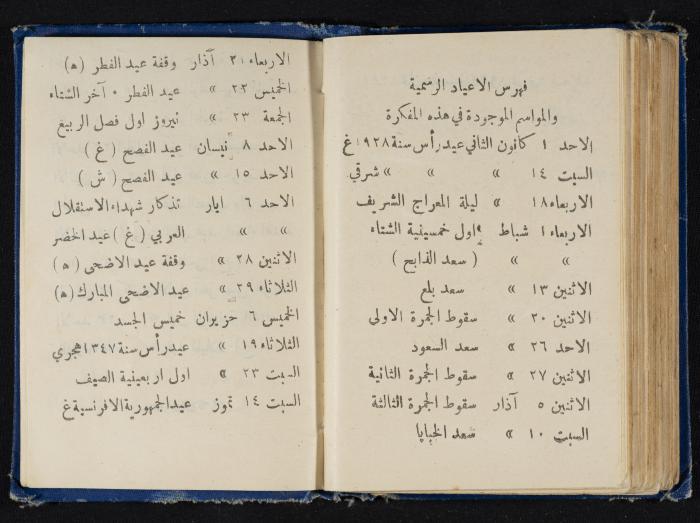 فهرس الاعياد الرسمية
والمواسم الموجودة في هذه المفكرة
الاحد ١ كانون الثاني عيد رأس سنة ١٩٢٨ غ
السبت ١٤ » » » شرقي
الاربعاء ١٨ » ليلة المعراج الشريف
الاربعاء ١ شباط اول خمسينية الشتاء
» » ( سعد الذابح )
الاثنين ١٣ » سعد بلع
الاثنين ٢٠ » سقوط الجمرة الاولى
الاحد ٢٦ » سعد السعود
الاثنين ٢٧ » سقوط الجمرة الثانية
الاثنين ٥ آذار سقوط الجمرة الثالثة
السبت ١٠ » سعد الخبايا
الاربعاء ٢١ آذار وقفة عيد الفطر (ه)
الخميس ٢٢ » عيد الفطر ٠ آخر الشتاء
الجمعة ٢٣ » نيروز اول فصل الربيع
الاحد ٨ نيسان عيد الفصح ( غ )
الاحد ١٥ » عيد الفصح ( ش )
الاحد ٦ ايار تذكار شهداء الاستقلال
» » العربي ( غ ) عيد الخضر
الاثنين ٢٨ » وقفة عيد الاضحى ( ه )
الثلاثاء ٢٩ » عيد الاضحى المبارك (ه)
الخميس ٦ حزيران خميس الجسد
الثلاثاء ١٩ » عيد رأس سنة ١٣٤٧ هجري
السبت ٢٣ » اول اربعينية الصيف
السبت ١٤ تموز عيد الجمهورية الافرنسية غ